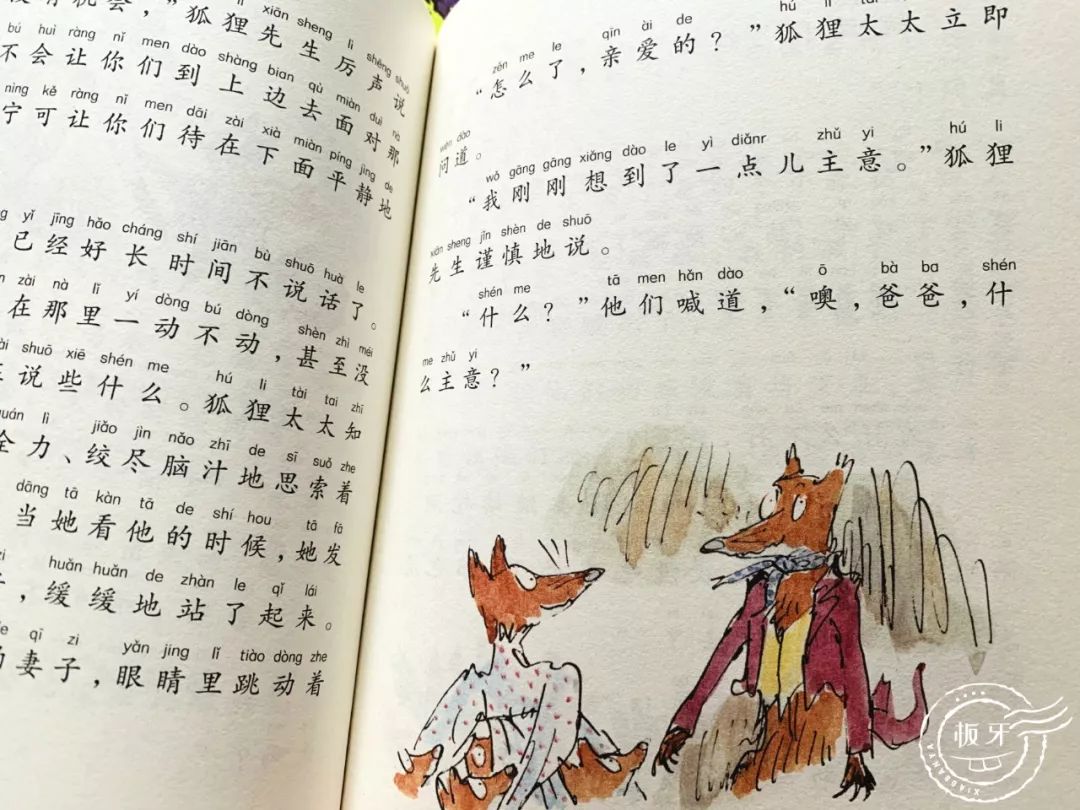 xiān sheng lì shēng shuō
”狐狸先生厉声说
bú huì ràng nǐ men dào shàng bian qù miàn duì nà
不会让你们到上边去面对那
nìng kě ràng nǐ men dāi zài xià miàn píng jìng de
宁可让你们待在下面平静地
yǐ jīng hǎo cháng shí jiān bù shuō huà le
已经好长时间不说话了。
zài nà lǐ yí dòng bú dòng shèn zhì méi
在那里一动不动，甚至没
shuō xiē shén me hú li tài tai zhī
说些什么。狐狸太太知
lì jiǎo jìn nǎo zhī de sī suǒ zhe
全力、绞尽脑汁地思索着
dāng tā kàn tā de shí hou tā fā
当她看他的时候，她发
huǎn huǎn de zhàn le qǐ lái
，缓缓地站了起来。
qī zi yǎn jing lǐ tiào dòng zhe
的妻子，眼睛里跳动着
zěn me le qīn ài de
“怎么了，亲爱的？”狐狸太太立即
wèn dào
问道。
wǒ gāng gāng xiǎng dào le yì diǎnr zhǔ yi hú li
“我刚刚想到了一点儿主意。”狐狸
xiān sheng jǐn shèn de shuō
先生谨慎地说。
shén me tā men hǎn dào ō bà ba shén
“什么？”他们喊道，“噢，爸爸，什
me zhǔ yi
么主意？”
板牙
XIAOBANYA